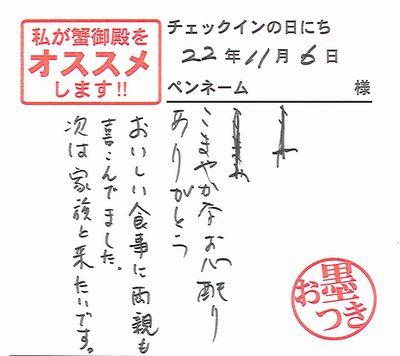 私が蟹御殿を
オススメ
します!!
チェックインの日にち
22年11月6日
ペンネーム 様
こまやかなお心配り
ありがとう
おいしい食事に両親も
喜こんでました。
次は家族と来たいです。
お墨つき